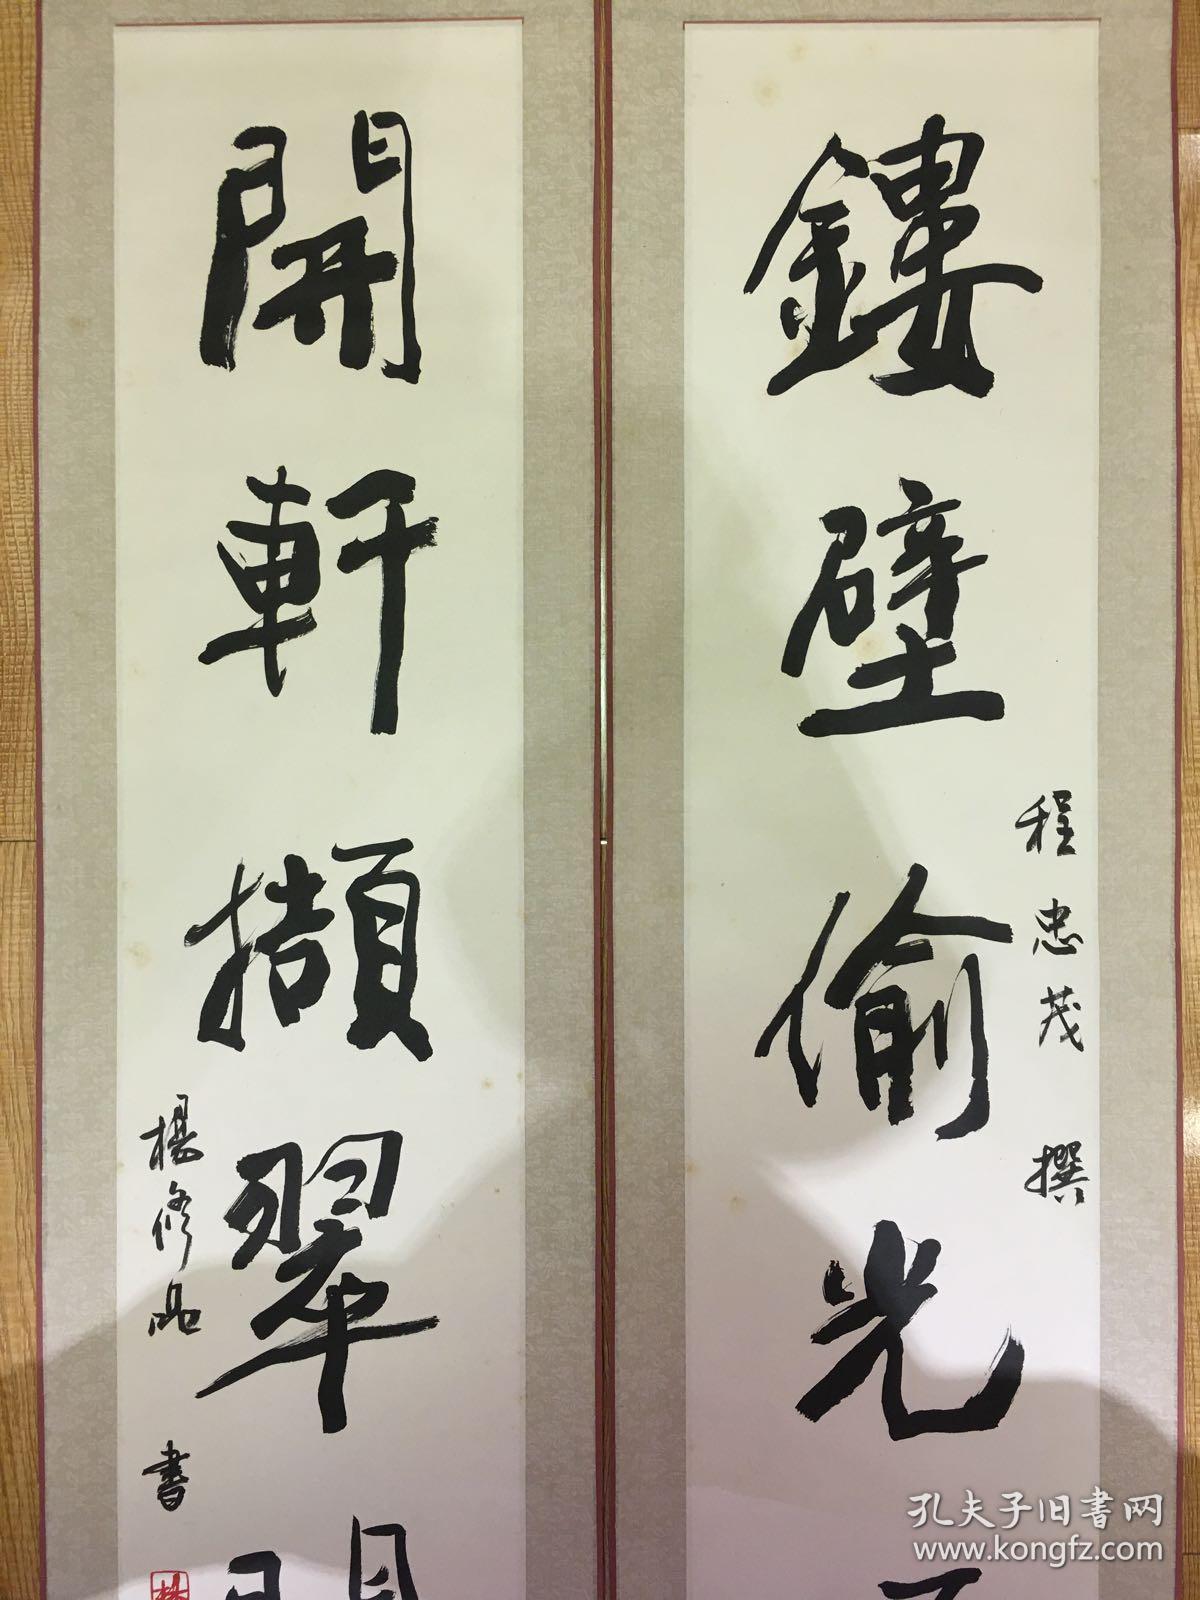 鏤壁偷光
程忠茂 撰
開軒擷翠
楊修品 書
孔夫子旧书网
www.kongfz.com